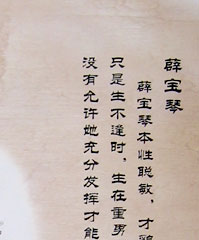 薛宝琴
薛宝琴本性聪敏，才
只是生不逢时，生在重男
没有允许她充分发挥才能